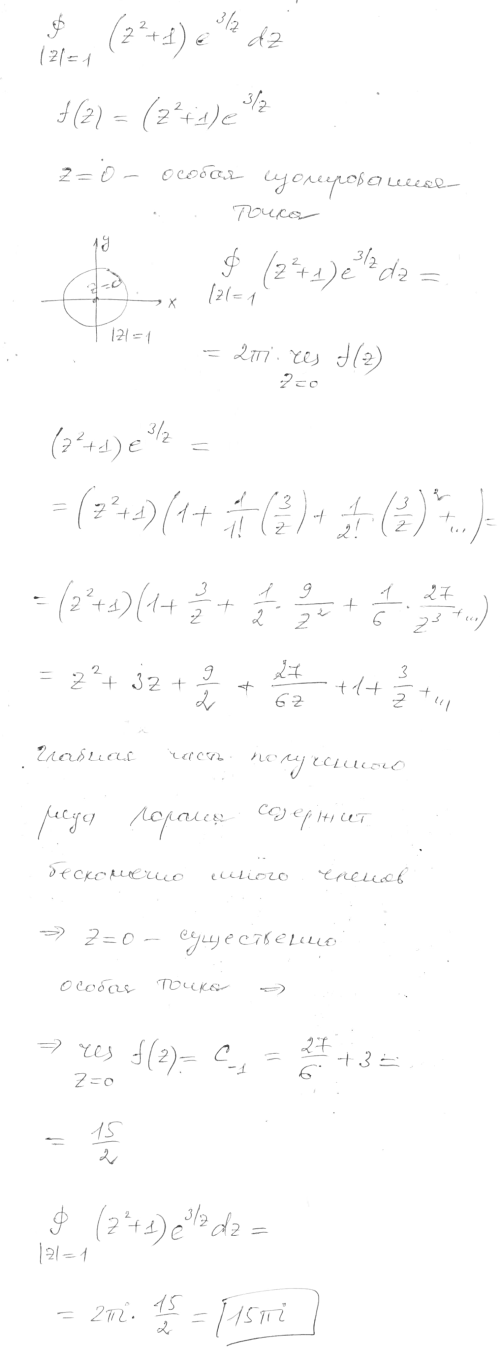 ∮ (z²+1) e^{3/z} dz
|z|=1
f(z) = (z²+1)e^{3/z}
z=0 – особая изолированная
точка
y
z=0
x
|z|=1
∮ (z²+1)e^{3/z}dz =
|z|=1
= 2πi · res f(z)
z=0
(z²+1) e^{3/z} =
= (z²+1)(1+ 1/1! (3/z) + 1/2! · (3/z)² + ...) =
= (z²+1)(1+ 3/z + 1/2 · 9/z² + 1/6 · 27/z³ + ...)
= z² + 3z + 9/2 + 27/6z + 1 + 3/z + ...
Главная часть полученного
ряда Лорана содержит
бесконечно много членов
⇒ z=0 – существенно
особая точка ⇒
⇒ res f(z) = C₋₁ = 27/6 + 3 =
z=0
= 15/2
∮ (z²+1)e^{3/z}dz =
|z|=1
= 2πi · 15/2 = 15πi